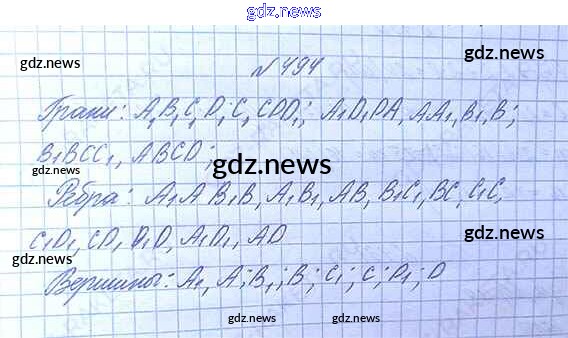 gdz.news
gdz.news
gdz.news
№494
Грани: A₁B₁C₁D₁; C₁CDD₁; A₁D₁DA, AA₁, B₁, B;
B₁BCC₁, ABCD;
gdz.news
gdz.news
Ребра: A₁A B₁B, A₁B₁, AB, B₁C₁, BC, C₁C,
C₁D₁, CD, D₁D, A₁D₁, AD
gdz.news
gdz.news
Вершины: A₁, A; B₁; B; C₁; C; D₁; D
gdz.news
gdz.news